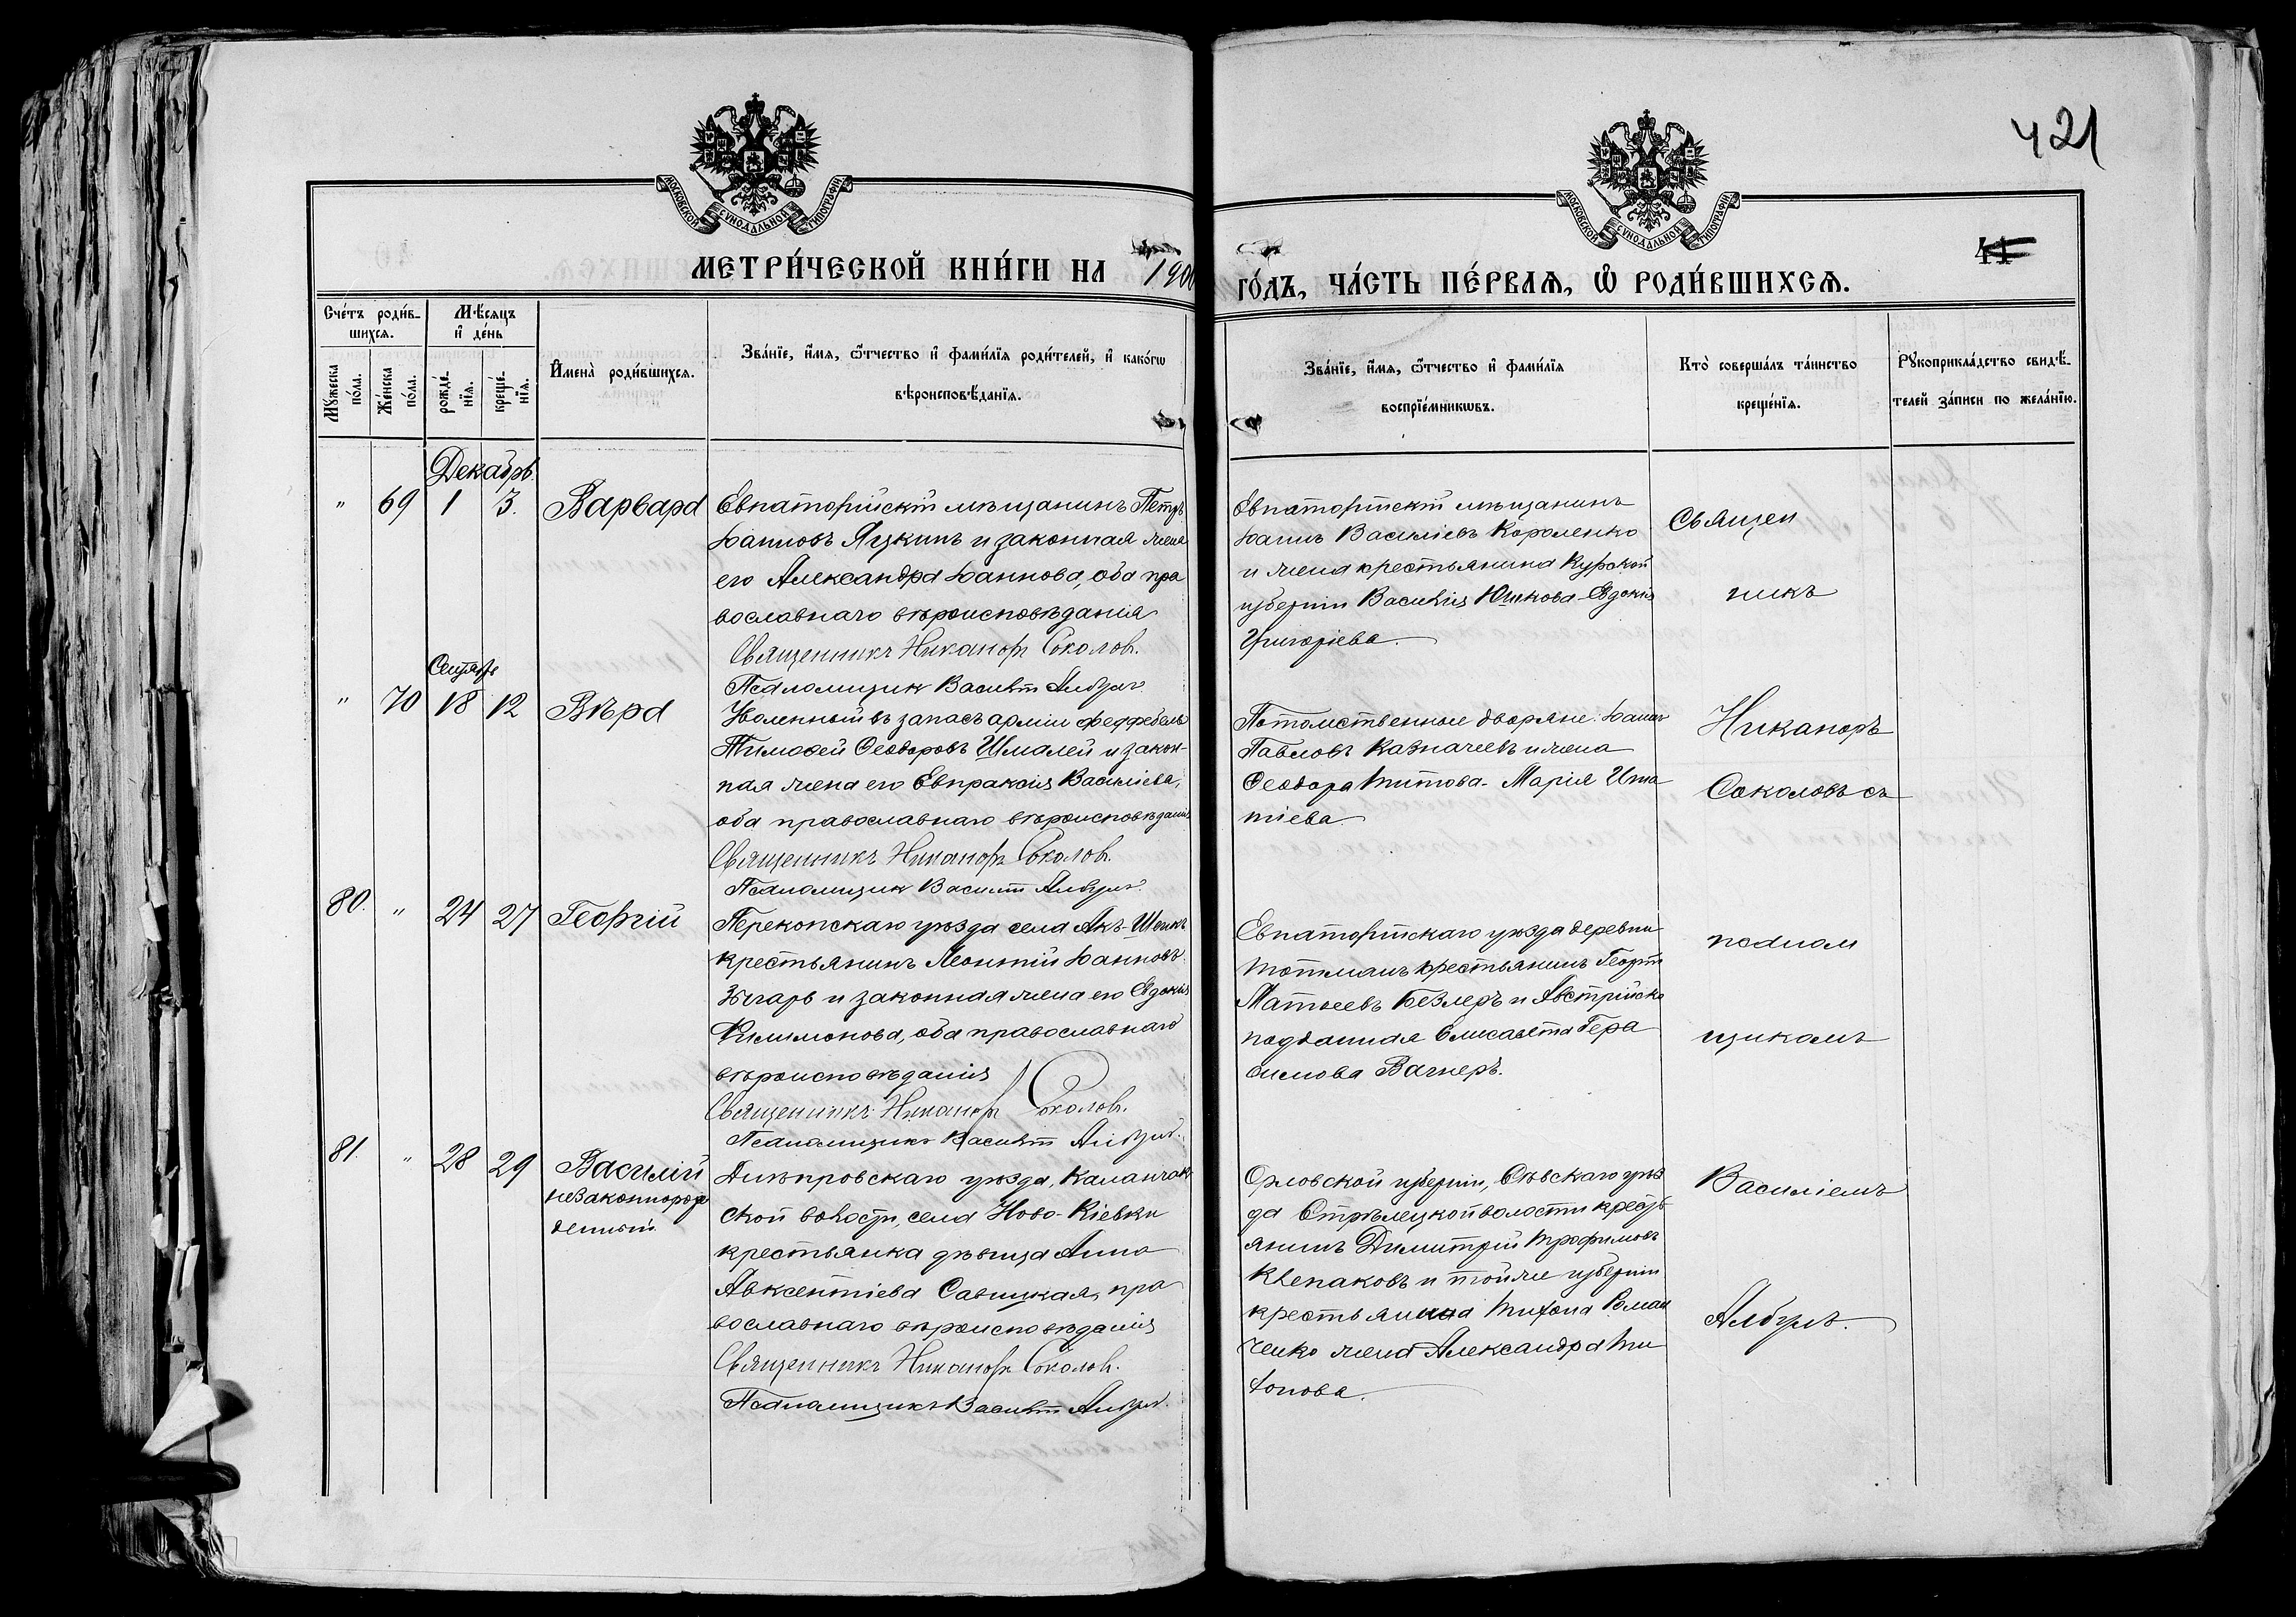 421
МОСКОВСКОЙ СѴНОДАЛЬНОЙ ТИПОГРАФІИ
МОСКОВСКОЙ СѴНОДАЛЬНОЙ ТИПОГРАФІИ
41
МЕТРИ́ЧЕСКОЙ КНИ́ГИ НА 190
ГО́ДЪ, ЧА́СТЬ ПЕ́РВАѦ, Ѡ҆ РОДИ́ВШИХСѦ.
Сче́тъ роди́в-
шихсѧ.
Мѣ́сѧцъ
и҆ де́нь
Мꙋ́жеска
по́ла.
Же́нска
по́ла.
рожде́-
нїѧ.
креще́-
нїѧ.
И҆мена̀ роди́вшихсѧ.
Зва́нїе, и҆́мѧ, ѻ҆́тчество и҆ фами́лїѧ роди́телей, и҆ како́гѡ
вѣроисповѣ́данїѧ.
Зва́нїе, и҆́мѧ, ѻ҆́тчество и҆ фами́лїѧ
воспрїе́мникѡвъ.
Кто̀ соверша́лъ та́инство
креще́нїѧ.
Рꙋкоприкла́дство свидѣ́-
телей за́писи по жела́нїю.
Декабрь.
" 69 1 3. Варвара
Евпаторійскій мѣщанинъ Петръ
Іоанновъ Яцкинъ и законная жена
его Александра Іоаннова, оба пра
вославнаго вѣроисповѣданія
Священникъ Никаноръ Соколовъ.
Псаломщик Василій Албулъ
Евпаторійскій мѣщанинъ
Іоаннъ Василіевъ Короленко
и жена крестьянина Курской
губерніи Василія Юшкова Евдокія
Григоріева.
Священ
никъ
Сентябрь
" 70 18 12 Вѣра
Уволенный въ запасъ арміи фельдфебель
Тимофей Ѳеодоровъ Шмалей и закон-
ная жена его Евпраксія Василіева,
оба православнаго вѣроисповѣданія
Священникъ Никаноръ Соколовъ.
Псаломщик Василій Албулъ.
Потомственные дворяне: Іоаннъ
Павловъ Казначеевъ и жена
Ѳеодора Титова. Марія Игна
тіева.
Никаноръ
Соколовъ съ
80. " 24 27 Георгій
Перекопскаго уѣзда села Акъ-Шеихъ
крестьянинъ Леонтій Іоанновъ
и законная жена его Евдокія
Филимонова, оба православнаго
вѣроисповѣданія
Священникъ Никаноръ Соколовъ.
Псаломщикъ Василій Албулъ.
Евпаторійскаго уѣзда деревни
крестьянинъ Георгій
Матвеевъ Безлеръ и Австрійско
подданная Елисавета Гера
симова Вагнеръ.
псалом
щикомъ
81. " 28 29 Василій
незаконнорож
денный
Днѣпровскаго уѣзда, Каланчак
ской волости, села Ново-Кіевки
крестьянка дѣвица Анна
Авксентіева Савицкая, пра
вославнаго вѣроисповѣданія
Священникъ Никаноръ Соколовъ.
Псаломщикъ Василій Албулъ.
Орловской губерніи, Сѣвскаго уѣз
да Стрѣлецкой волости кресть
янинъ Димитрій Трофимовъ
Клепаковъ и той же губерніи
крестьянина Тихона Роман
ченко жена Александра Ти
хонова.
Василіемъ
Албулъ.